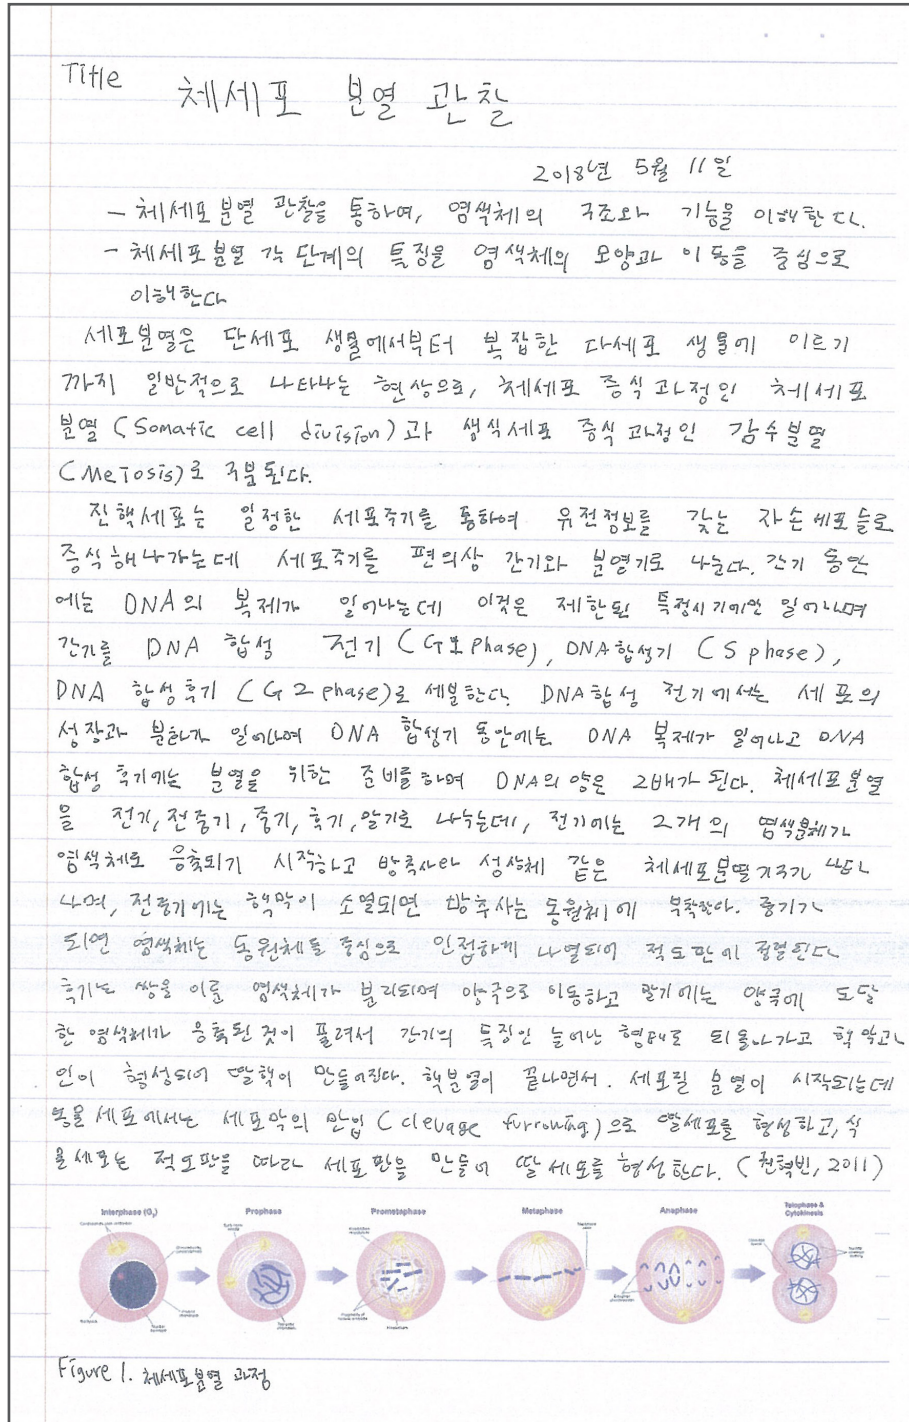 Title
체세포 분열 관찰
2018년 5월 11일
- 체세포분열 관찰을 통하여, 염색체의 구조와 기능을 이해한다.
- 체세포분열 각 단계의 특징을 염색체의 모양과 이동을 중심으로
이해한다
세포분열은 단세포 생물에서부터 복잡한 다세포 생물에 이르기
까지 일반적으로 나타나는 현상으로, 체세포 증식 과정인 체세포
분열 (Somatic cell division)과 생식세포 증식 과정인 감수분열
(Meiosis)로 구분된다.
진핵세포는 일정한 세포주기를 통하여 유전정보를 갖는 자손 세포들로
증식해나가는데 세포주기를 편의상 간기와 분열기로 나눈다. 간기 동안
에는 DNA의 복제가 일어나는데 이것은 제한된 특정시기에만 일어나며
간기를 DNA 합성 전기 (G1 phase), DNA합성기 (S phase),
DNA 합성후기 (G2 phase)로 세분한다. DNA합성 전기에서는 세포의
성장과 분화가 일어나며 DNA 합성기 동안에는 DNA 복제가 일어나고 DNA
합성 후기에는 분열을 위한 준비를하며 DNA의 양은 2배가 된다. 체세포분열
을 전기, 전중기, 중기, 후기, 말기로 나누는데, 전기에는 2개의 염색분체가
염색체로 응축되기 시작하고 방추사와 성상체 같은 체세포분열기구가 나타
나며, 전중기에는 핵막이 소멸되면 방추사는 동원체에 부착한다. 중기가
되면 염색체는 동원체를 중심으로 인접하게 나열되어 적도판에 정렬된다
후기는 쌍을 이룬 염색체가 분리되며 양극으로 이동하고 말기에는 양극에 도달
한 염색체가 응축된 것이 풀려서 간기의 특징인 늘어난 형태로 되돌아가고 핵막과
인이 형성되어 딸핵이 만들어진다. 핵분열이 끝나면서. 세포질 분열이 시작되는데
동물 세포에서는 세포막의 만입 (clevage furrowing)으로 딸세포를 형성하고, 식
물세포는 적도판을 따라 세포판을 만들어 딸세포를 형성한다. (권혁빈, 2011)
Interphase (G₂) Prophase Prometaphase Metaphase Anaphase Telophase & Cytokinesis
Figure 1. 체세포분열 과정